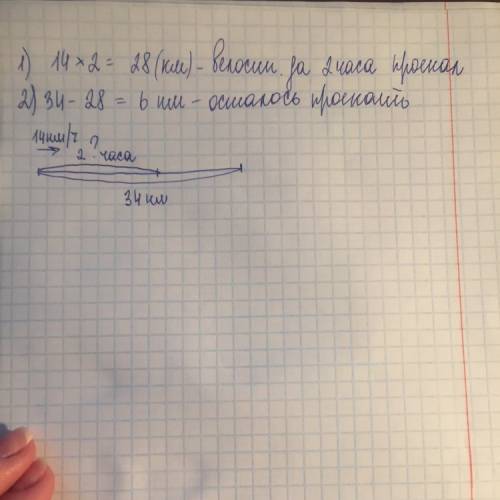 1) 14 × 2 = 28 (км) - велосип. за 2 часа проехал
2) 34 - 28 = 6 км - осталось проехать
14км/ч
?
2 часа
34 км